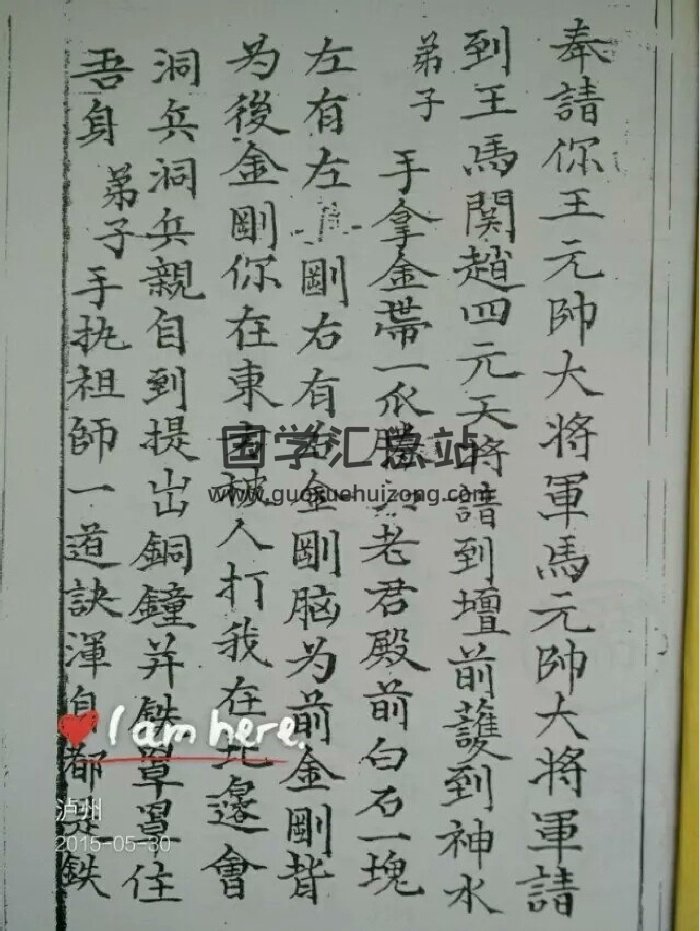 奉請你王元帥大将軍馬元帥大将軍請
到王馬関趙四元天将請到壇前護到神水
弟子 手拿金帶一 老君殿前白石一塊
左有左 剛右有右金剛脑为前金剛背
为後金剛你在東 被人打我在北邉會
洞兵洞兵親自到提出銅鐘并鉄罩罩住
吾身 弟子 手执祖師一道訣渾身都是鉄
国学汇总站
www.guoxuehuizong.com
I am here.
泸州
2015-05-30